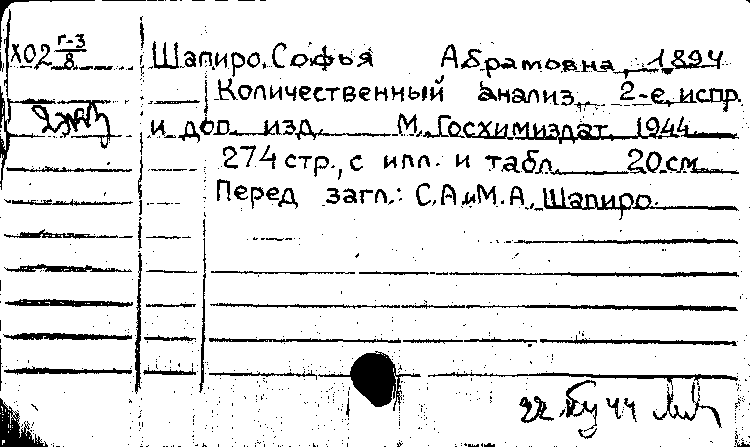 Х02 г-3/8 Шапиро, Софья Абрамовна, 1894
Количественный анализ, 2-е, испр.
и доп. изд. М., Госхимиздат, 1944
274 стр., с илл. и табл. 20 см
Перед загл.: С.А. и М.А. Шапиро.
22. 44